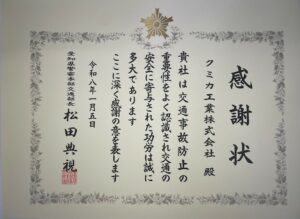 感謝状
クミカ工業株式会社 殿
貴社は交通事故防止の
重要性をよく認識され交通の
安全に寄与された功労は誠に
多大であります
ここに深く感謝の意を表します
令和八年一月五日
愛知県警察本部交通部長
松田典視